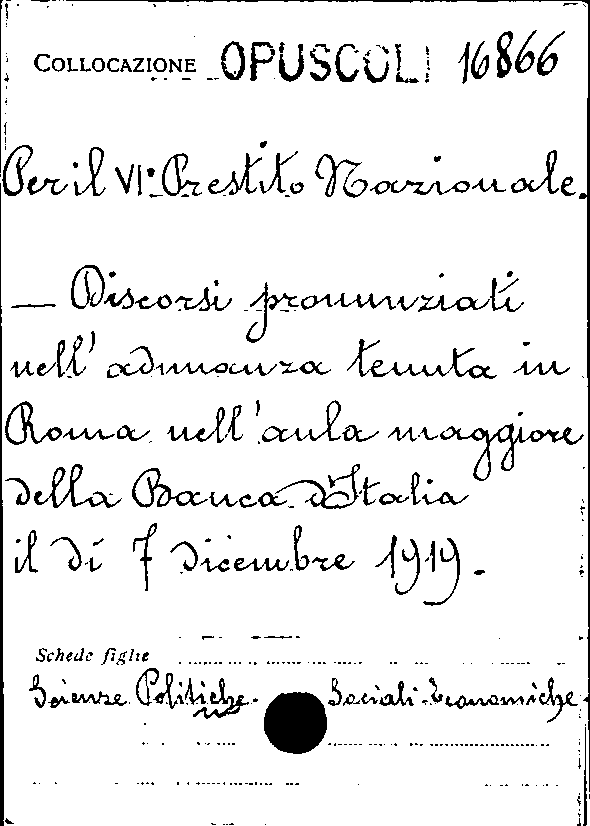 COLLOCAZIONE OPUSCOLI 16866
Per il VI° Prestito Nazionale.
— Discorsi pronunziati
nell'adunanza tenuta in
Roma nell'aula maggiore
della Banca d'Italia
il dí 7 dicembre 1919.
Schede figlie
Scienze Politiche. Sociali-Economiche.